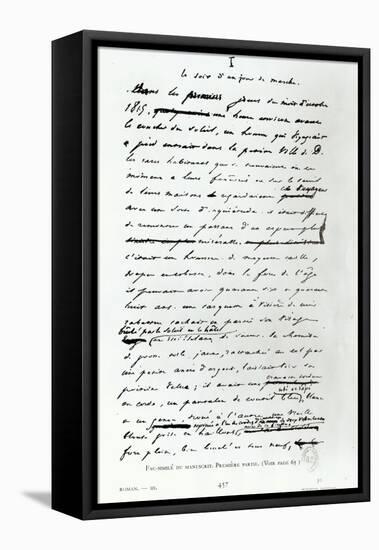 I
le soir d'un jour de marche.
Dans les premiers jours du mois d'octobre
1815, une heure environ avant
le coucher du soleil, un homme qui voyageait
à pied entrait dans la petite ville de D.
les rares habitants qui se trouvaient en ce
moment à leurs fenêtres ou sur le seuil
de leurs maisons regardaient ce voyageur
avec une sorte d'inquiétude. il était difficile
de rencontrer un passant d'un aspect plus
misérable.
c'était un homme de moyenne taille,
trapu et robuste, dans la force de l'âge.
il pouvait avoir quarante six ou quarante
huit ans. une casquette à visière de cuir
rabattue cachait en partie son visage
brûlé par le soleil et le hâle
et ruisselant de sueur. sa chemise
de grosse toile jaune, rattachée au col par
une petite ancre d'argent, laissait voir sa
poitrine velue ; il avait une cravate tordue
en corde, un pantalon de coutil bleu, usé et râpé, blanc
à un genou, troué à l'autre, une vieille
blouse grise en haillons,
fort plein, bien bouclé et tout neuf,
FAC-SIMILÉ DU MANUSCRIT. PREMIÈRE PARTIE. (VOIR PAGE 65)
ROMAN. — III.
457